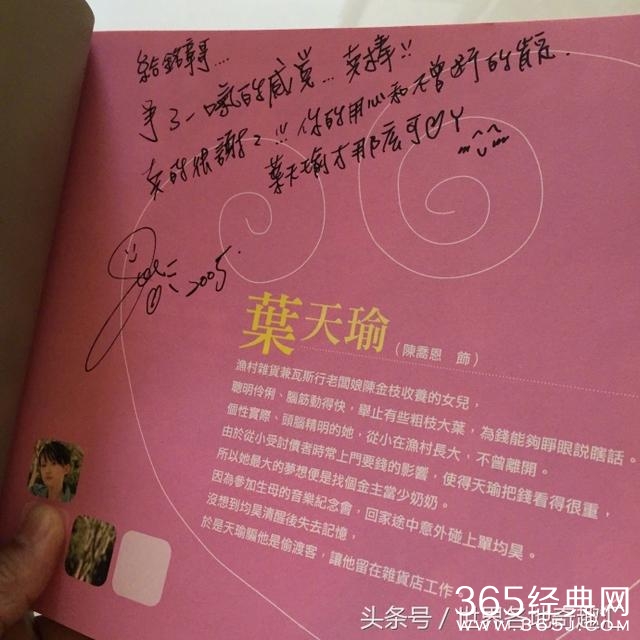 給銘章哥...
爭了一口氣的感覺... 真棒!!
真的很謝謝!!! 你的用心和不曾斷的肯定.
葉天瑜才那麼可
2005.
葉天瑜
（陳喬恩 飾）
漁村雜貨兼瓦斯行老闆娘陳金枝收養的女兒，
聰明伶俐、腦筋動得快，舉止有些粗枝大葉，為錢能夠睜眼說瞎話。
個性實際、頭腦精明的她，從小在漁村長大，不曾離開。
由於從小受討債者時常上門要錢的影響，使得天瑜把錢看得很重，
所以她最大的夢想便是找個金主當少奶奶。
因為參加生母的音樂紀念會，回家途中意外碰上單均昊。
沒想到均昊清醒後失去記憶，
於是天瑜騙他是偷渡客，讓他留在雜貨店工作
365经典网
头条号 / 世界各地奇趣
WWW.365J.COM